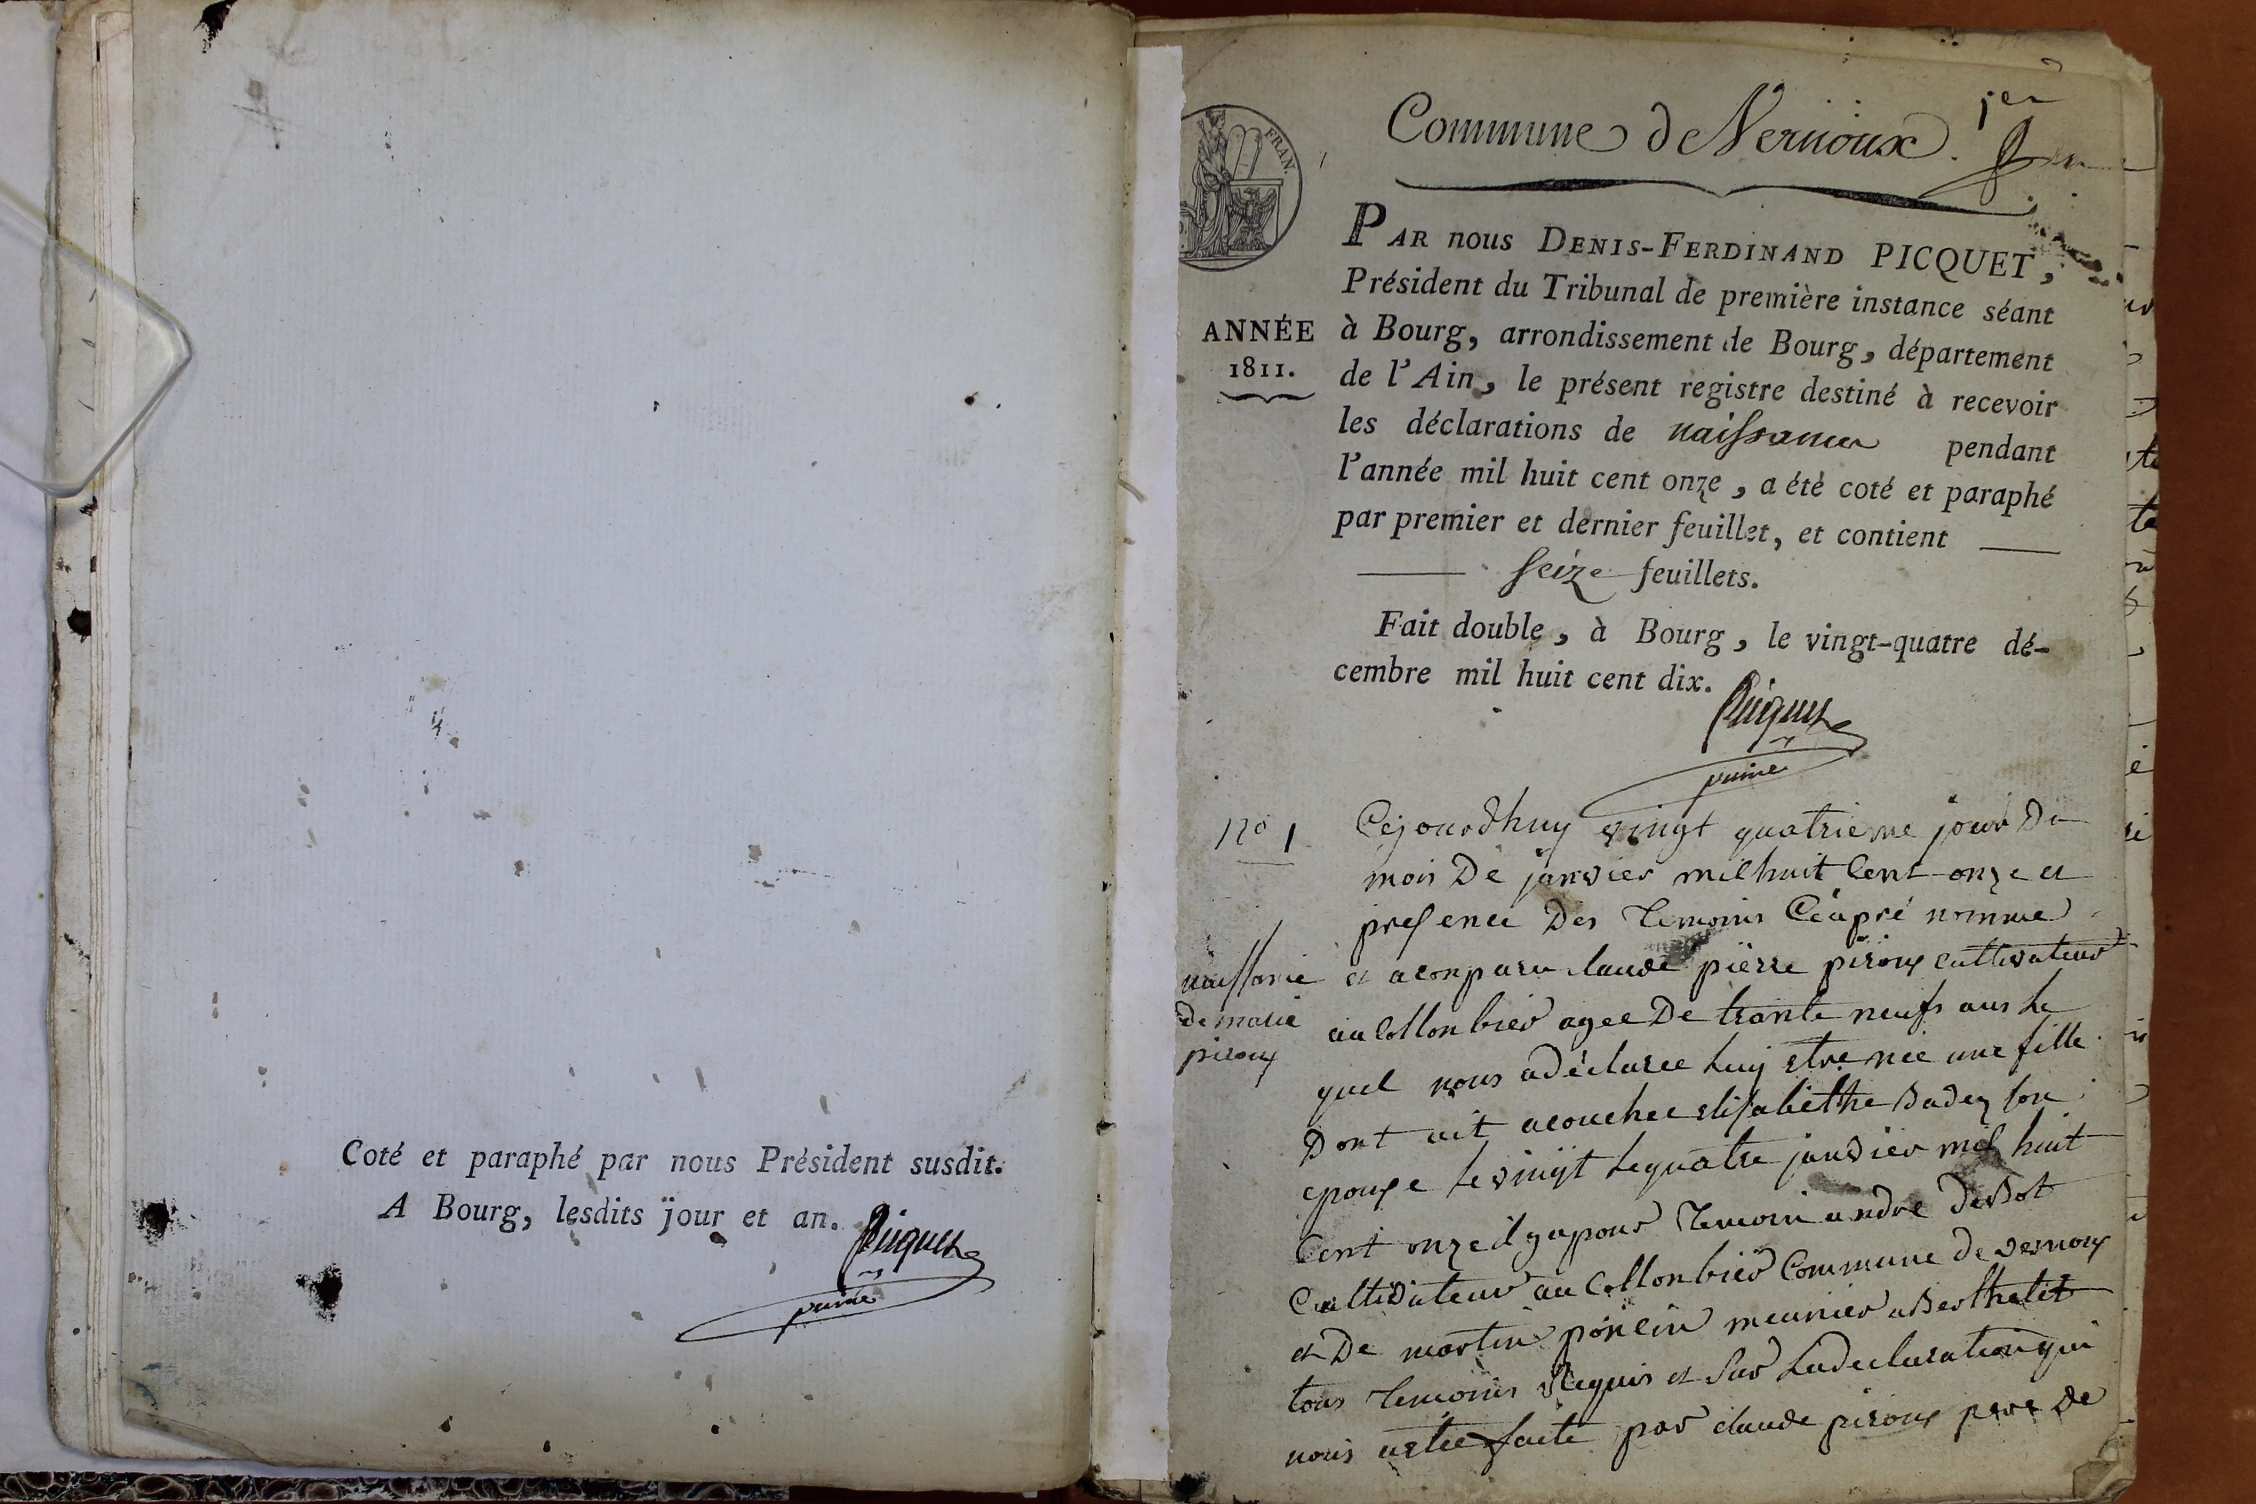 Coté et paraphé par nous Président susdit.
A Bourg, lesdits jour et an.
Picquet
puiné
Commune de Vernoux. 1er
FRAN.
ANNÉE
1811.
PAR nous DENIS-FERDINAND PICQUET,
Président du Tribunal de première instance séant
à Bourg, arrondissement de Bourg, département
de l'Ain, le présent registre destiné à recevoir
les déclarations de naissances pendant
l'année mil huit cent onze, a été coté et paraphé
par premier et dernier feuillet, et contient
seize feuillets.
Fait double, à Bourg, le vingt-quatre dé-
cembre mil huit cent dix.
Picquet
puiné
no 1
naissance
de marie
piroux
Cejourdhuy vingt quatrieme jour du
mois De janvier mil huit Cent onze et
presence Des Temoins Ciaprè nommé
et a conparu claude pierre piroux cultivateur
au Collonbier agee De trante neufs ans Le
quel nous a déclaree Luy etre née une fille
Dont ait acouchee elisabethe son
epouse le vingt le quatre janvier mil huit
Cent onze il ya pour Temoin andré
Cultivateur au Collonbier Commune de vernoux
et De martin poncin meunier a Berthelet
tous Temoins Requis et Sur La declaration qui
nous a etee faite par claude piroux pere De